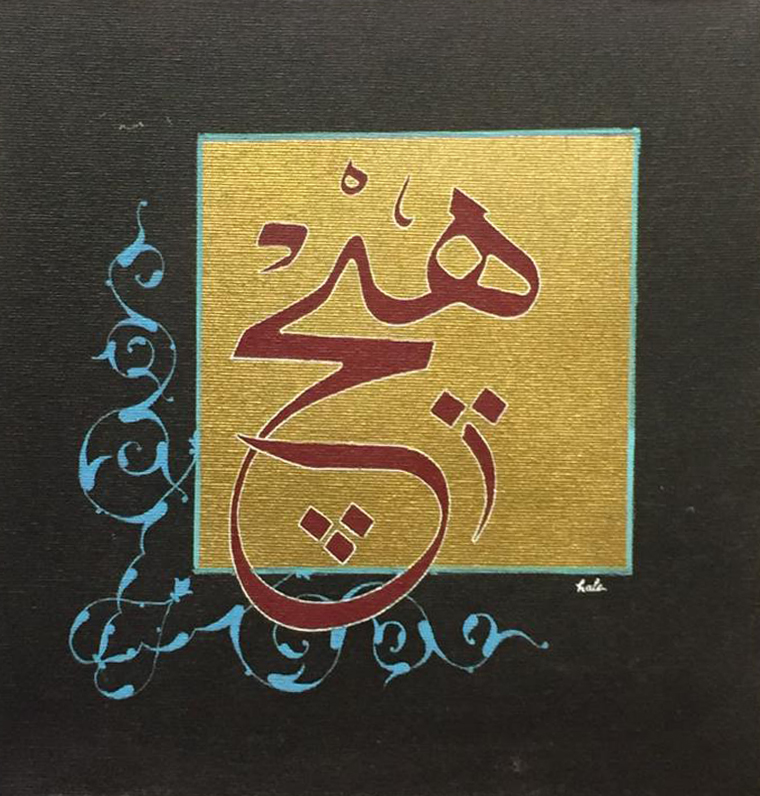 هیچ
hale